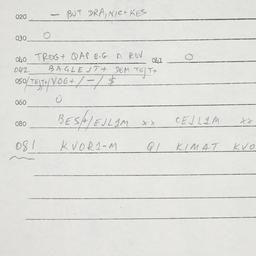 020 — BUT DRAINIC+KES
030 O
040 TROG+ QAP E.G D ROV 041 O
042 BAGLEJT+ DEM TEJT+
050/TEJT+/VOG+/-/$
060 O
080 BES/+/EJL1M xx CEJL1M xx
081 KVOR1-M Q1 KIMAT KVO